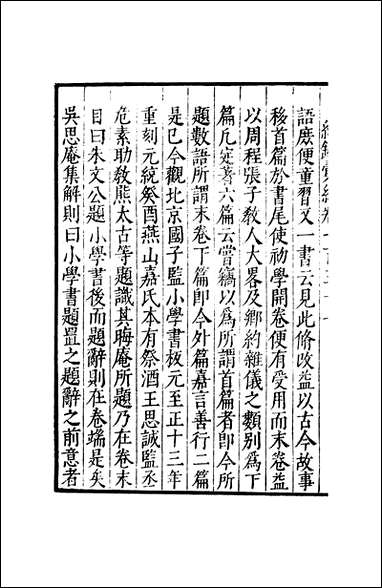 語庶便童習又一書云見此修改益以古今故事
移首篇於書尾使初學開卷便有受用而末卷益
以周程張子教人大畧及鄉約雜儀之類別為下
篇凡定著六篇云嘗竊以為所謂首篇者即今所
題數語所謂末卷下篇即今外篇嘉言善行二篇
是已今觀北京國子監小學書板元至正十三年
重刻元統癸酉燕山嘉氏本有祭酒王思誠監丞
危素助教熊太古等題識其晦庵所題乃在卷末
目曰朱文公題小學書後而題辭則在卷端是矣
吳思庵集解則曰小學書題置之題辭之前意者